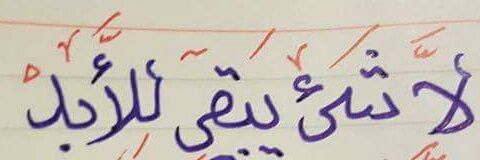 لا شئ يبقى للأبد